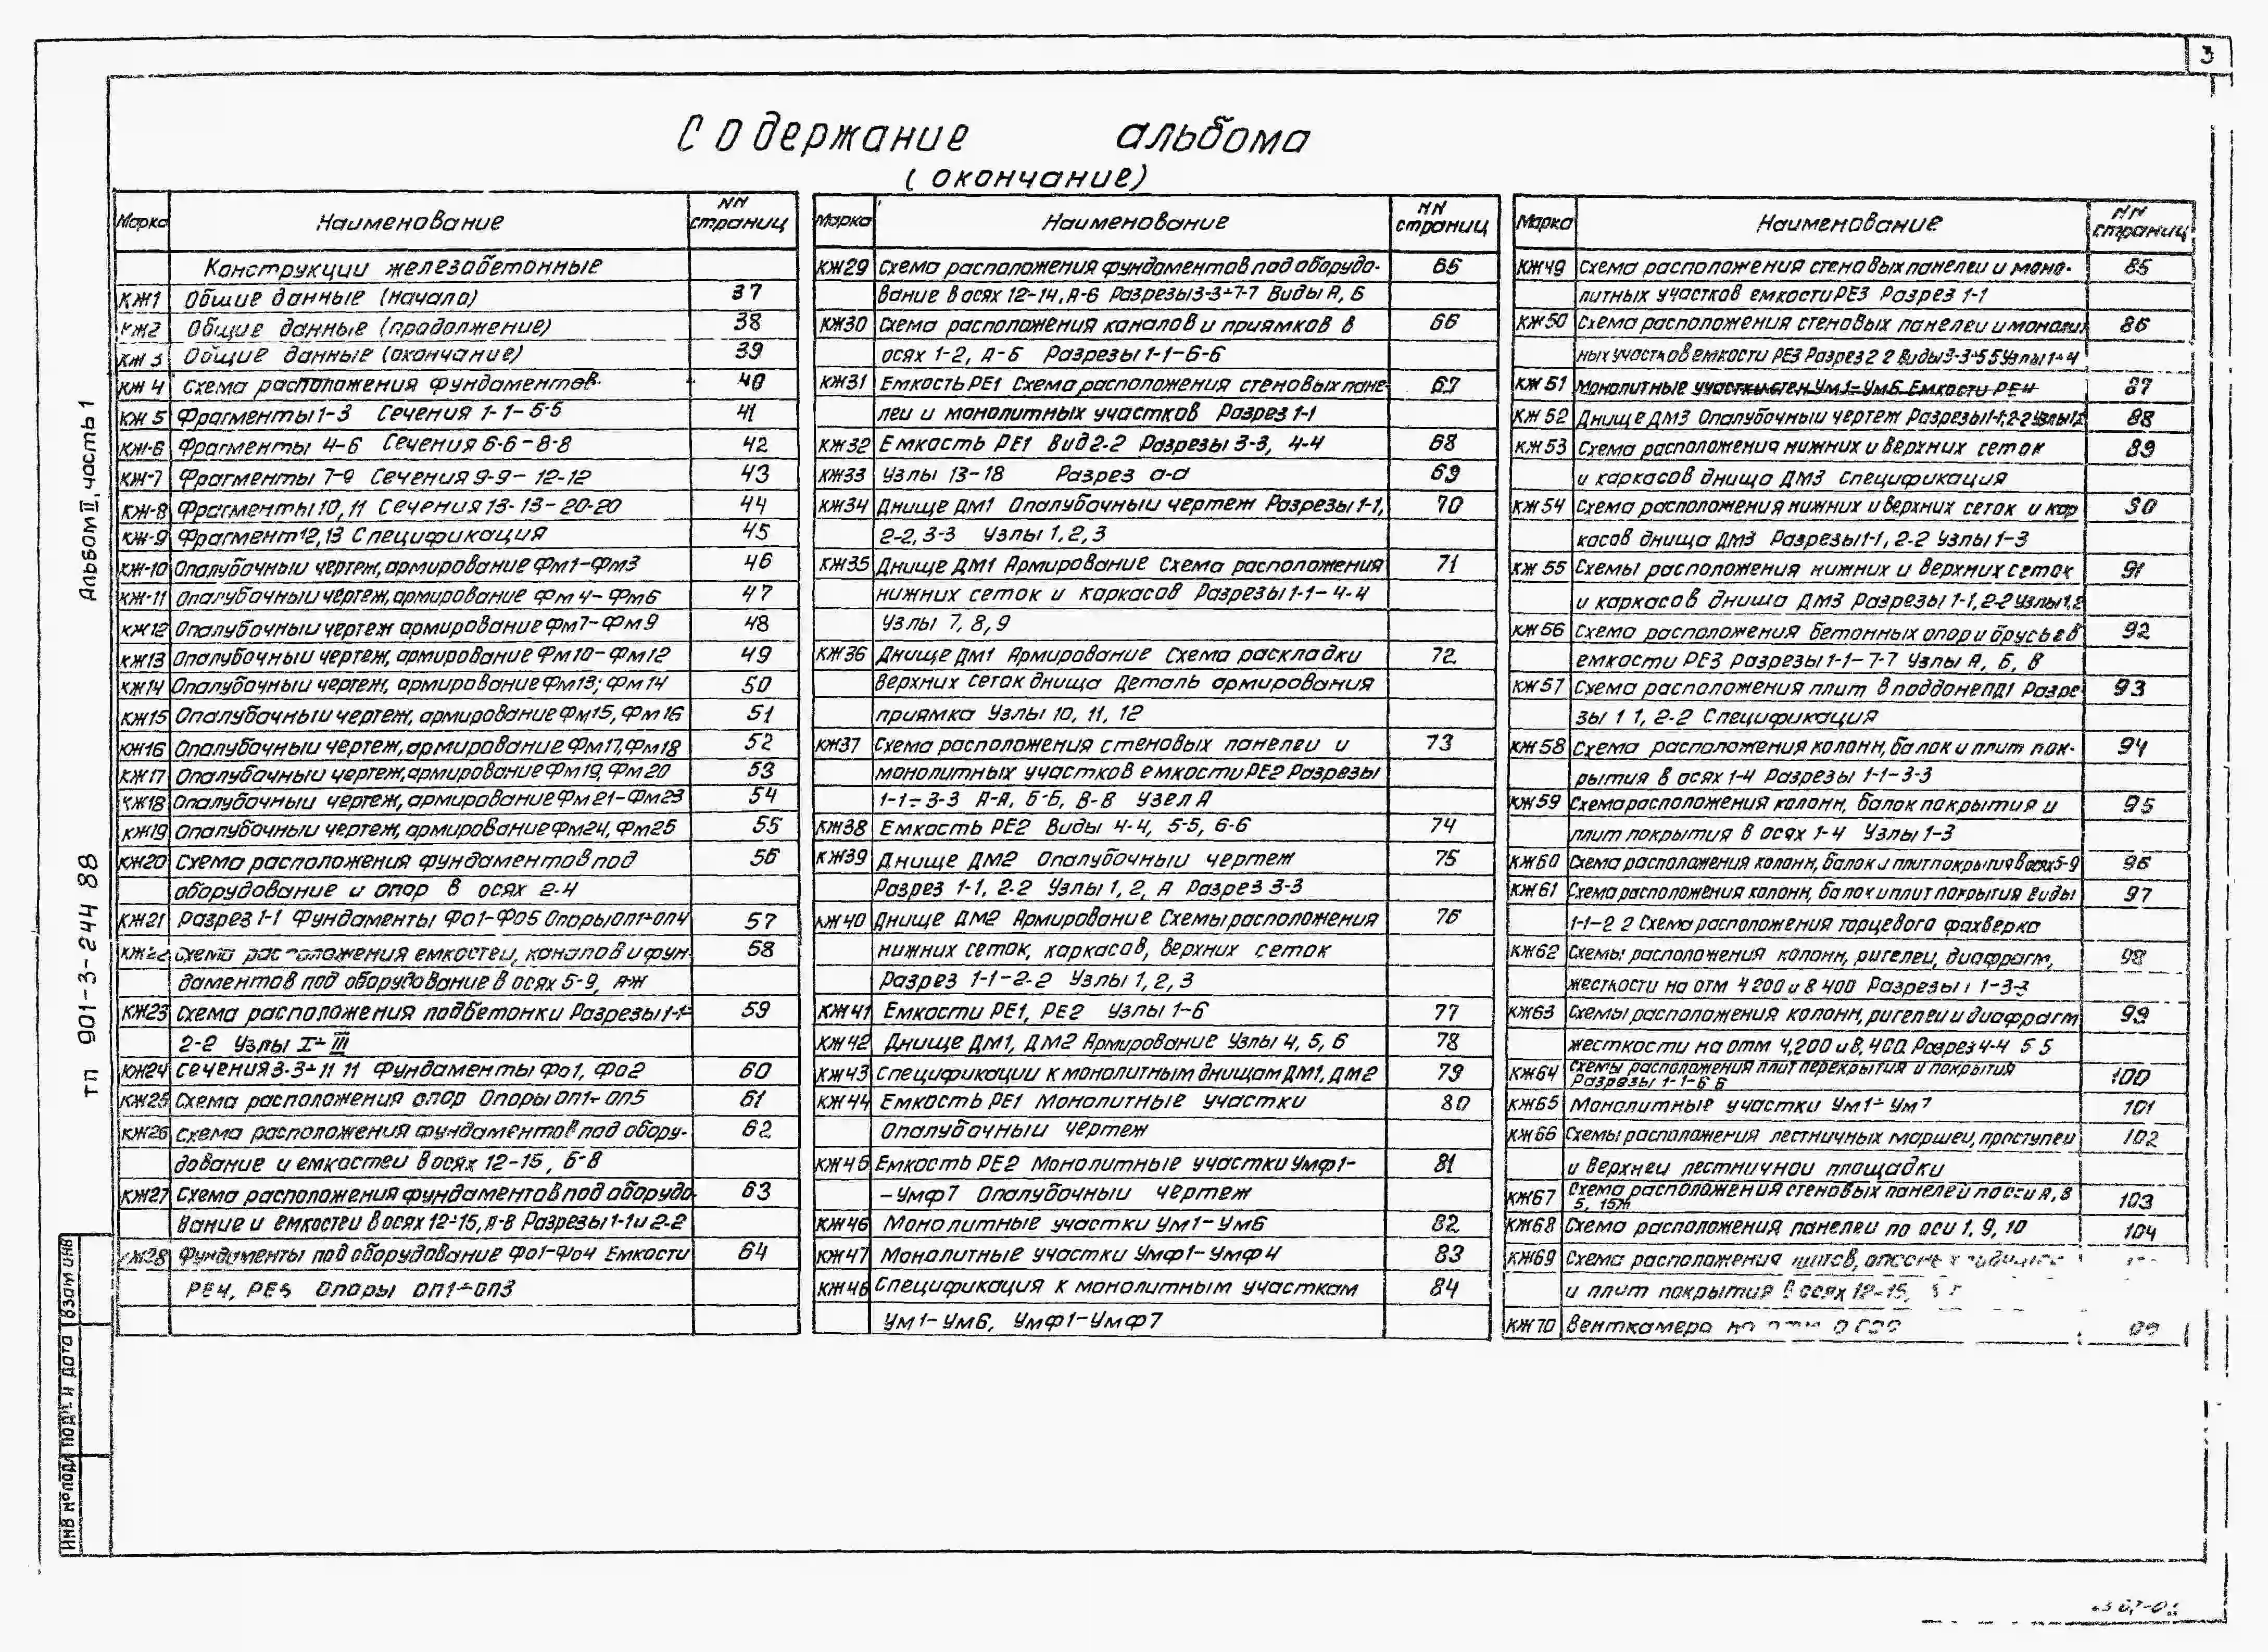 3
Содержание альбома
(окончание)
Марка Наименование NN страниц
Конструкции железобетонные
КЖ1 Общие данные (начало) 37
КЖ2 Общие данные (продолжение) 38
КЖ3 Общие данные (окончание) 39
КЖ4 Схема расположения фундаментов 40
КЖ5 Фрагменты 1-3 Сечения 1-1-5-5 41
КЖ-6 Фрагменты 4-6 Сечения 6-6-8-8 42
КЖ-7 Фрагменты 7-9 Сечения 9-9-12-12 43
КЖ-8 Фрагменты 10,11 Сечения 13-13-20-20 44
КЖ-9 Фрагмент 12,13 Спецификация 45
КЖ-10 Опалубочный чертеж, армирование Фм1-Фм3 46
КЖ-11 Опалубочный чертеж, армирование Фм4-Фм6 47
КЖ12 Опалубочный чертеж армирование Фм7-Фм9 48
КЖ13 Опалубочный чертеж, армирование Фм10-Фм12 49
КЖ14 Опалубочный чертеж, армирование Фм13; Фм14 50
КЖ15 Опалубочный чертеж, армирование Фм15, Фм16 51
КЖ16 Опалубочный чертеж, армирование Фм17, Фм18 52
КЖ17 Опалубочный чертеж, армирование Фм19, Фм20 53
КЖ18 Опалубочный чертеж, армирование Фм21-Фм23 54
КЖ19 Опалубочный чертеж, армирование Фм24, Фм25 55
КЖ20 Схема расположения фундаментов под 56
оборудование и опор в осях 2-4
КЖ21 Разрез 1-1 Фундаменты Фо1-Фо5 Опоры оп1÷оп4 57
КЖ22 Схема расположения емкостей, каналов и фун- 58
даментов под оборудование в осях 5-9, А-Ж
КЖ23 Схема расположения подбетонки Разрезы 1-1÷ 59
2-2 Узлы I÷III
КЖ24 Сечения 3-3÷11 11 Фундаменты Фо1, Фо2 60
КЖ25 Схема расположения опор Опоры оп1÷оп5 61
КЖ26 Схема расположения фундаментов под обору- 62
дование и емкостей в осях 12-15, Б-В
КЖ27 Схема расположения фундаментов под оборудо 63
вание и емкостей в осях 12-15, А-В Разрезы 1-1 и 2-2
КЖ28 Фундаменты под оборудование Фо1-Фо4 Емкости 64
РЕ4, РЕ5 Опоры оп1÷оп3
Марка Наименование NN страниц
КЖ29 Схема расположения фундаментов под оборудо- 65
вание в осях 12-14, А-Б Разрезы 3-3÷7-7 Виды А, Б
КЖ30 Схема расположения каналов и приямков в 66
осях 1-2, А-Б Разрезы 1-1-6-6
КЖ31 Емкость РЕ1 Схема расположения стеновых пане- 67
лей и монолитных участков Разрез 1-1
КЖ32 Емкость РЕ1 Вид 2-2 Разрезы 3-3, 4-4 68
КЖ33 Узлы 13-18 Разрез а-а 69
КЖ34 Днище Дм1 Опалубочный чертеж Разрезы 1-1, 70
2-2, 3-3 Узлы 1, 2, 3
КЖ35 Днище Дм1 Армирование Схема расположения 71
нижних сеток и каркасов Разрезы 1-1-4-4
Узлы 7, 8, 9
КЖ36 Днище Дм1 Армирование Схема раскладки 72
верхних сеток днища Деталь армирования
приямка Узлы 10, 11, 12
КЖ37 Схема расположения стеновых панелей и 73
монолитных участков емкости РЕ2 Разрезы
1-1÷3-3 А-А, Б-Б, В-В Узел А
КЖ38 Емкость РЕ2 Виды 4-4, 5-5, 6-6 74
КЖ39 Днище Дм2 Опалубочный чертеж 75
Разрез 1-1, 2-2 Узлы 1, 2, А Разрез 3-3
КЖ40 Днище Дм2 Армирование Схемы расположения 76
нижних сеток, каркасов, верхних сеток
Разрез 1-1-2-2 Узлы 1, 2, 3
КЖ41 Емкости РЕ1, РЕ2 Узлы 1-6 77
КЖ42 Днище Дм1, Дм2 Армирование Узлы 4, 5, 6 78
КЖ43 Спецификации к монолитным днищам Дм1, Дм2 79
КЖ44 Емкость РЕ1 Монолитные участки 80
Опалубочный чертеж
КЖ45 Емкость РЕ2 Монолитные участки Умф1- 81
-Умф7 Опалубочный чертеж
КЖ46 Монолитные участки Ум1-Ум6 82
КЖ47 Монолитные участки Умф1-Умф4 83
КЖ48 Спецификация к монолитным участкам 84
Ум1-Ум6, Умф1-Умф7
Марка Наименование NN страниц
КЖ49 Схема расположения стеновых панелей и моно- 85
литных участков емкости РЕ3 Разрез 1-1
КЖ50 Схема расположения стеновых панелей и монолит 86
ных участков емкости РЕ3 Разрез 2 2 Виды 3-3÷5 5 Узлы 1÷4
КЖ51 Монолитные участки стен Ум1-Ум6 Емкости РЕ4 87
КЖ52 Днище Дм3 Опалубочный чертеж Разрезы 1-1; 2-2 Узлы 1,2 88
КЖ53 Схема расположения нижних и верхних сеток 89
и каркасов днища Дм3 Спецификация
КЖ54 Схема расположения нижних и верхних сеток и кар 90
касов днища Дм3 Разрезы 1-1, 2-2 Узлы 1-3
КЖ55 Схемы расположения нижних и верхних сеток 91
и каркасов днища Дм3 Разрезы 1-1, 2-2 Узлы 1,2
КЖ56 Схема расположения бетонных опор и брусьев 92
емкости РЕ3 Разрезы 1-1-7-7 Узлы А, Б, В
КЖ57 Схема расположения плит в поддоне ПД1 Разре 93
зы 1 1, 2-2 Спецификация
КЖ58 Схема расположения колонн, балок и плит пок- 94
рытия в осях 1-4 Разрезы 1-1-3-3
КЖ59 Схема расположения колонн, балок покрытия и 95
плит покрытия в осях 1-4 Узлы 1-3
КЖ60 Схема расположения колонн, балок и плит покрытия в осях 5-9 96
КЖ61 Схема расположения колонн, балок и плит покрытия Виды 97
1-1-2 2 Схема расположения торцевого фахверка
КЖ62 Схемы расположения колонн, ригелей, диафрагм, 98
жесткости на отм 4 200 и 8 400 Разрезы 1 1-3-3
КЖ63 Схемы расположения колонн, ригелей и диафрагм 99
жесткости на отм 4,200 и 8,400 Разрез 4-4 5 5
КЖ64 Схемы расположения плит перекрытия и покрытия 100
Разрезы 1-1-6 6
КЖ65 Монолитные участки Ум1÷Ум7 101
КЖ66 Схемы расположения лестничных маршей, проступей 102
и верхней лестничной площадки
КЖ67 Схема расположения стеновых панелей по оси А, В 103
5, 15Ж
КЖ68 Схема расположения панелей по оси 1, 9, 10 104
КЖ69 Схема расположения щитов,
и плит покрытия в осях 12-15,
КЖ70 Венткамера на
Альбом II, часть 1
ТП 901-3-244 88
Взам инв
Подп. и дата
Инв № подл